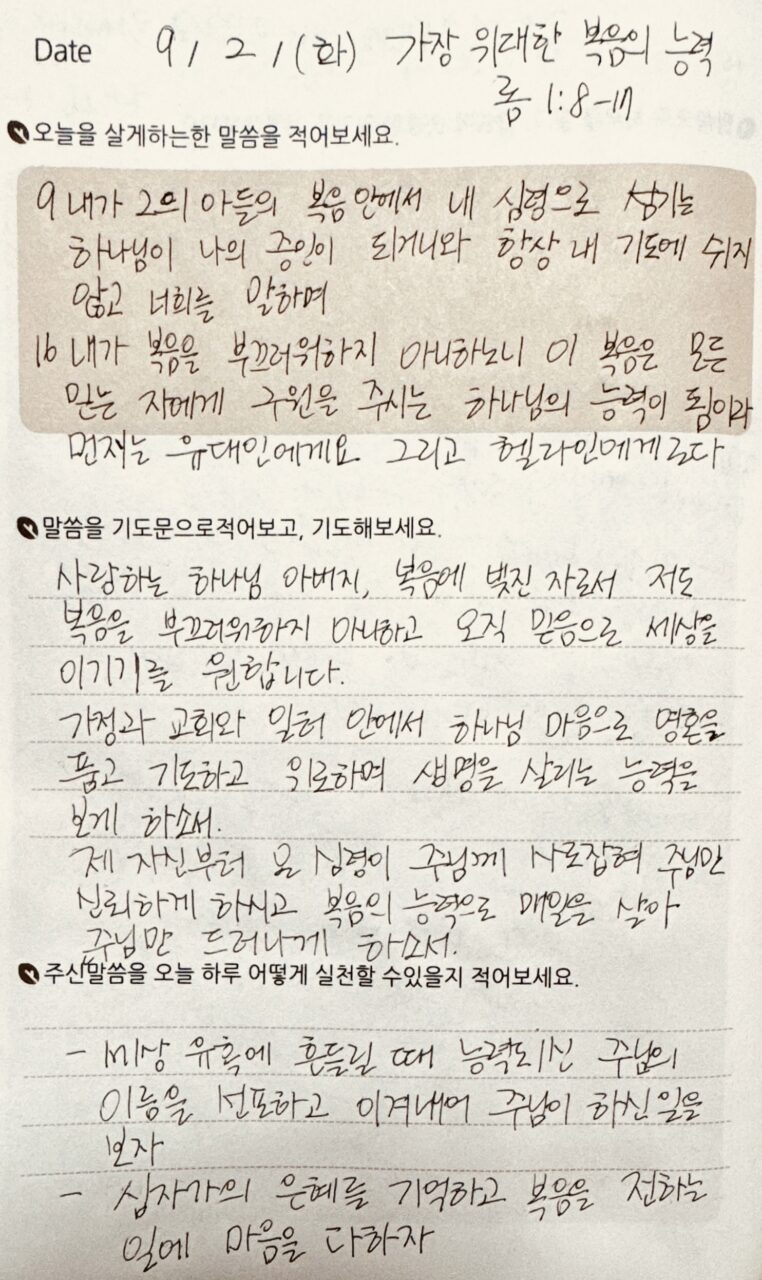 Date 9 / 2 / (화) 가장 위대한 복음의 능력
롬 1:8-17
오늘을 살게하는한 말씀을 적어보세요.
9 내가 그의 아들의 복음 안에서 내 심령으로 섬기는
하나님이 나의 증인이 되거니와 항상 내 기도에 쉬지
않고 너희를 말하며
16 내가 복음을 부끄러워하지 아니하노니 이 복음은 모든
믿는 자에게 구원을 주시는 하나님의 능력이 됨이라
먼저는 유대인에게요 그리고 헬라인에게로다
말씀을 기도문으로적어보고, 기도해보세요.
사랑하는 하나님 아버지, 복음에 빚진 자로서 저도
복음을 부끄러워하지 아니하고 오직 믿음으로 세상을
이기기를 원합니다.
가정과 교회와 일터 안에서 하나님 마음으로 영혼을
품고 기도하고 위로하며 생명을 살리는 능력을
보게 하소서.
제 자신부터 온 심령이 주님께 사로잡혀 주님만
신뢰하게 하시고 복음의 능력으로 매일을 살아
주님만 드러나게 하소서.
주신말씀을 오늘 하루 어떻게 실천할 수있을지 적어보세요.
- 세상 유혹에 흔들릴 때 능력되신 주님의
이름을 선포하고 이겨내어 주님이 하신일을
보자
- 십자가의 은혜를 기억하고 복음을 전하는
일에 마음을 다하자